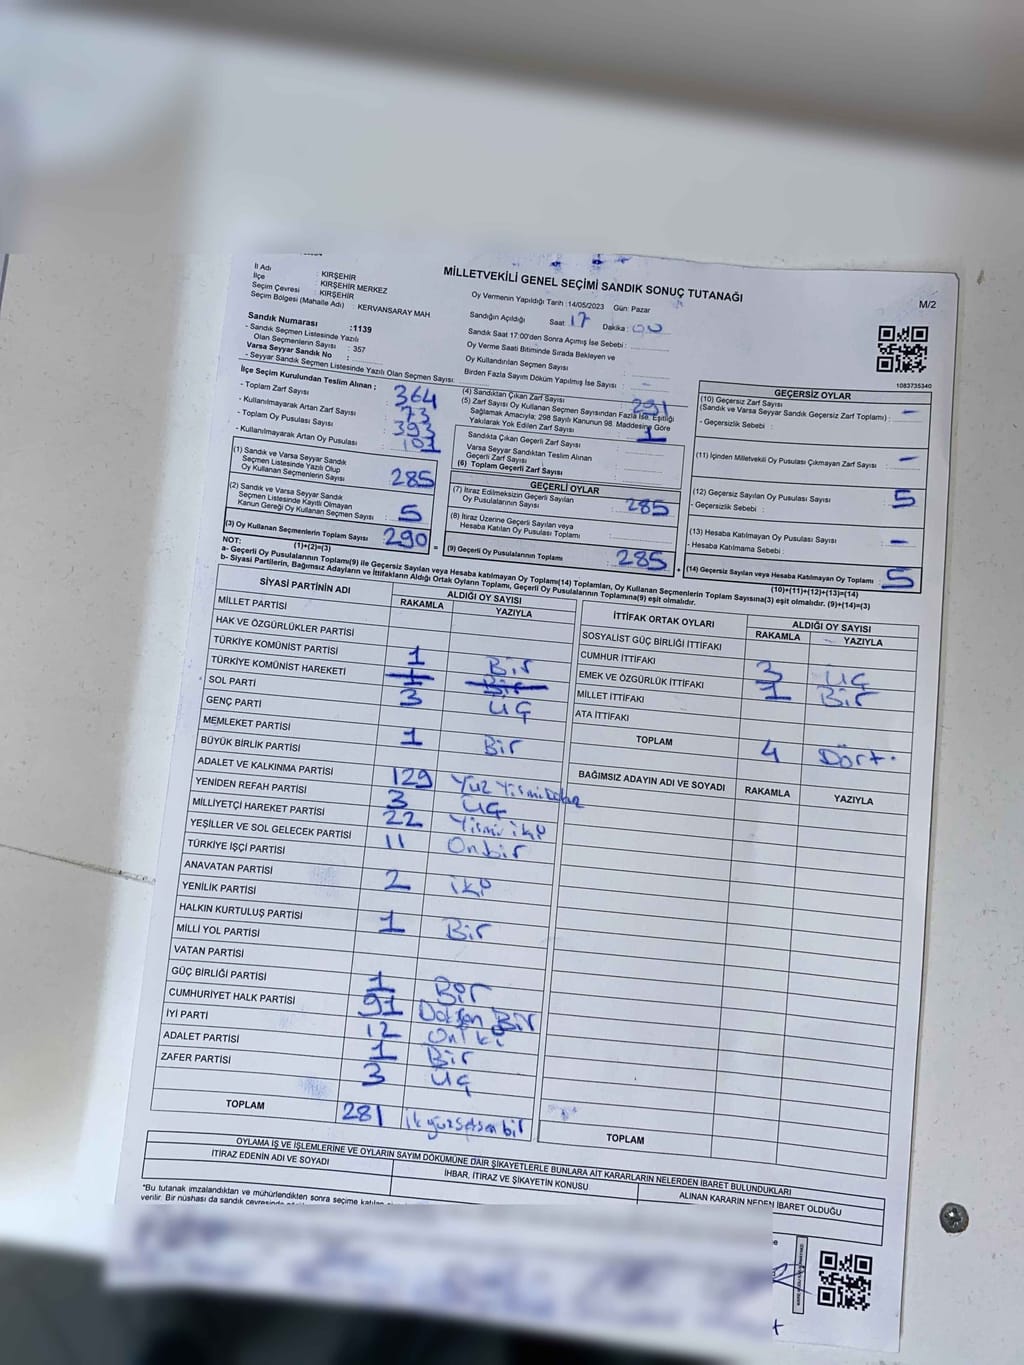 MİLLETVEKİLİ GENEL SEÇİMİ SANDIK SONUÇ TUTANAĞI
M/2
İl Adı : KIRŞEHİR
İlçe : KIRŞEHİR MERKEZ
Seçim Çevresi : KIRŞEHİR
Seçim Bölgesi (Mahalle Adı) : KERVANSARAY MAH
Oy Vermenin Yapıldığı Tarih :14/05/2023 Gün: Pazar
Sandığın Açıldığı Saat 17 Dakika : 00
Sandık Saat 17:00'den Sonra Açımış İse Sebebi :
Oy Verme Saati Bitiminde Sırada Bekleyen ve
Oy Kullandırılan Seçmen Sayısı
Birden Fazla Sayım Döküm Yapılmış İse Sayısı : -
1083735340
Sandık Numarası :1139
- Sandık Seçmen Listesinde Yazılı
Olan Seçmenlerin Sayısı : 357
Varsa Seyyar Sandık No :
- Seyyar Sandık Seçmen Listesinde Yazılı Olan Seçmen Sayısı:
İlçe Seçim Kurulundan Teslim Alınan ;
- Toplam Zarf Sayısı : 364
- Kullanılmayarak Artan Zarf Sayısı : 73
- Toplam Oy Pusulası Sayısı : 393
- Kullanılmayarak Artan Oy Pusulası : 101
(1) Sandık ve Varsa Seyyar Sandık
Seçmen Listesinde Yazılı Olup
Oy Kullanan Seçmen Sayısı : 285
(2) Sandık ve Varsa Seyyar Sandık
Seçmen Listesinde Kayıtlı Olmayan
Kanun Gereği Oy Kullanan Seçmen Sayısı : 5
(3) Oy Kullanan Seçmenlerin Toplam Sayısı : 290
(1)+(2)=(3)
(4) Sandıktan Çıkan Zarf Sayısı : 291
(5) Zarf Sayısı Oy Kullanan Seçmen Sayısından Fazla İse, Eşitliği
Sağlamak Amacıyla; 298 Sayılı Kanunun 98. Maddesine Göre
Yakılarak Yok Edilen Zarf Sayısı : 1
Sandıkta Çıkan Geçerli Zarf Sayısı :
Varsa Seyyar Sandıktan Teslim Alınan
Geçerli Zarf Sayısı :
(6) Toplam Geçerli Zarf Sayısı :
GEÇERLİ OYLAR
(7) İtiraz Edilmeksizin Geçerli Sayılan
Oy Pusulalarının Sayısı : 285
(8) İtiraz Üzerine Geçerli Sayılan veya
Hesaba Katılan Oy Pusulası Toplamı :
(9) Geçerli Oy Pusulalarının Toplamı : 285
GEÇERSİZ OYLAR
(10) Geçersiz Zarf Sayısı
(Sandık ve Varsa Seyyar Sandık Geçersiz Zarf Toplamı) : -
- Geçersizlik Sebebi :
(11) İçinden Milletvekili Oy Pusulası Çıkmayan Zarf Sayısı : -
(12) Geçersiz Sayılan Oy Pusulası Sayısı : 5
- Geçersizlik Sebebi :
(13) Hesaba Katılmayan Oy Pusulası Sayısı : -
- Hesaba Katılmama Sebebi :
(14) Geçersiz Sayılan veya Hesaba Katılmayan Oy Toplamı : 5
(10)+(11)+(12)+(13)=(14)
NOT:
a- Geçerli Oy Pusulalarının Toplamı(9) ile Geçersiz Sayılan veya Hesaba katılmayan Oy Toplamı(14) Toplamları, Oy Kullanan Seçmenlerin Toplam Sayısına(3) eşit olmalıdır. (9)+(14)=(3)
b- Siyasi Partilerin, Bağımsız Adayların ve İttifakların Aldığı Ortak Oyların Toplamı, Geçerli Oy Pusulalarının Toplamına(9) eşit olmalıdır.
SİYASİ PARTİNİN ADI ALDIĞI OY SAYISI
RAKAMLA YAZIYLA
MİLLET PARTİSİ
HAK VE ÖZGÜRLÜKLER PARTİSİ
TÜRKİYE KOMÜNİST PARTİSİ 1 Bir
TÜRKİYE KOMÜNİST HAREKETİ 1 Bir
SOL PARTİ 3 Üç
GENÇ PARTİ
MEMLEKET PARTİSİ 1 Bir
BÜYÜK BİRLİK PARTİSİ
ADALET VE KALKINMA PARTİSİ 129 Yüz Yirmi
YENİDEN REFAH PARTİSİ 3 Üç
MİLLİYETÇİ HAREKET PARTİSİ 22 Yirmi iki
YEŞİLLER VE SOL GELECEK PARTİSİ 11 Onbir
TÜRKİYE İŞÇİ PARTİSİ
ANAVATAN PARTİSİ 2 iki
YENİLİK PARTİSİ
HALKIN KURTULUŞ PARTİSİ 1 Bir
MİLLİ YOL PARTİSİ
VATAN PARTİSİ
GÜÇ BİRLİĞİ PARTİSİ 1 Bir
CUMHURİYET HALK PARTİSİ 91 Doksan Bir
İYİ PARTİ 12 On iki
ADALET PARTİSİ 1 Bir
ZAFER PARTİSİ 3 Üç
TOPLAM 281 ikiyüzseksen bir
İTTİFAK ORTAK OYLARI ALDIĞI OY SAYISI
RAKAMLA YAZIYLA
SOSYALİST GÜÇ BİRLİĞİ İTTİFAKI
CUMHUR İTTİFAKI 3 Üç
EMEK VE ÖZGÜRLÜK İTTİFAKI 1 Bir
MİLLET İTTİFAKI
ATA İTTİFAKI
TOPLAM 4 Dört.
BAĞIMSIZ ADAYIN ADI VE SOYADI RAKAMLA YAZIYLA
TOPLAM
OYLAMA İŞ VE İŞLEMLERİNE VE OYLARIN SAYIM DÖKÜMÜNE DAİR ŞİKAYETLERLE BUNLARA AİT KARARLARIN NELERDEN İBARET BULUNDUKLARI
İTİRAZ EDENİN ADI VE SOYADI İHBAR, İTİRAZ VE ŞİKAYETİN KONUSU ALINAN KARARIN NEDEN İBARET OLDUĞU
"Bu tutanak imzalandıktan ve mühürlendikten sonra seçime katılan
verilir. Bir nüshası da sandık çevresinde